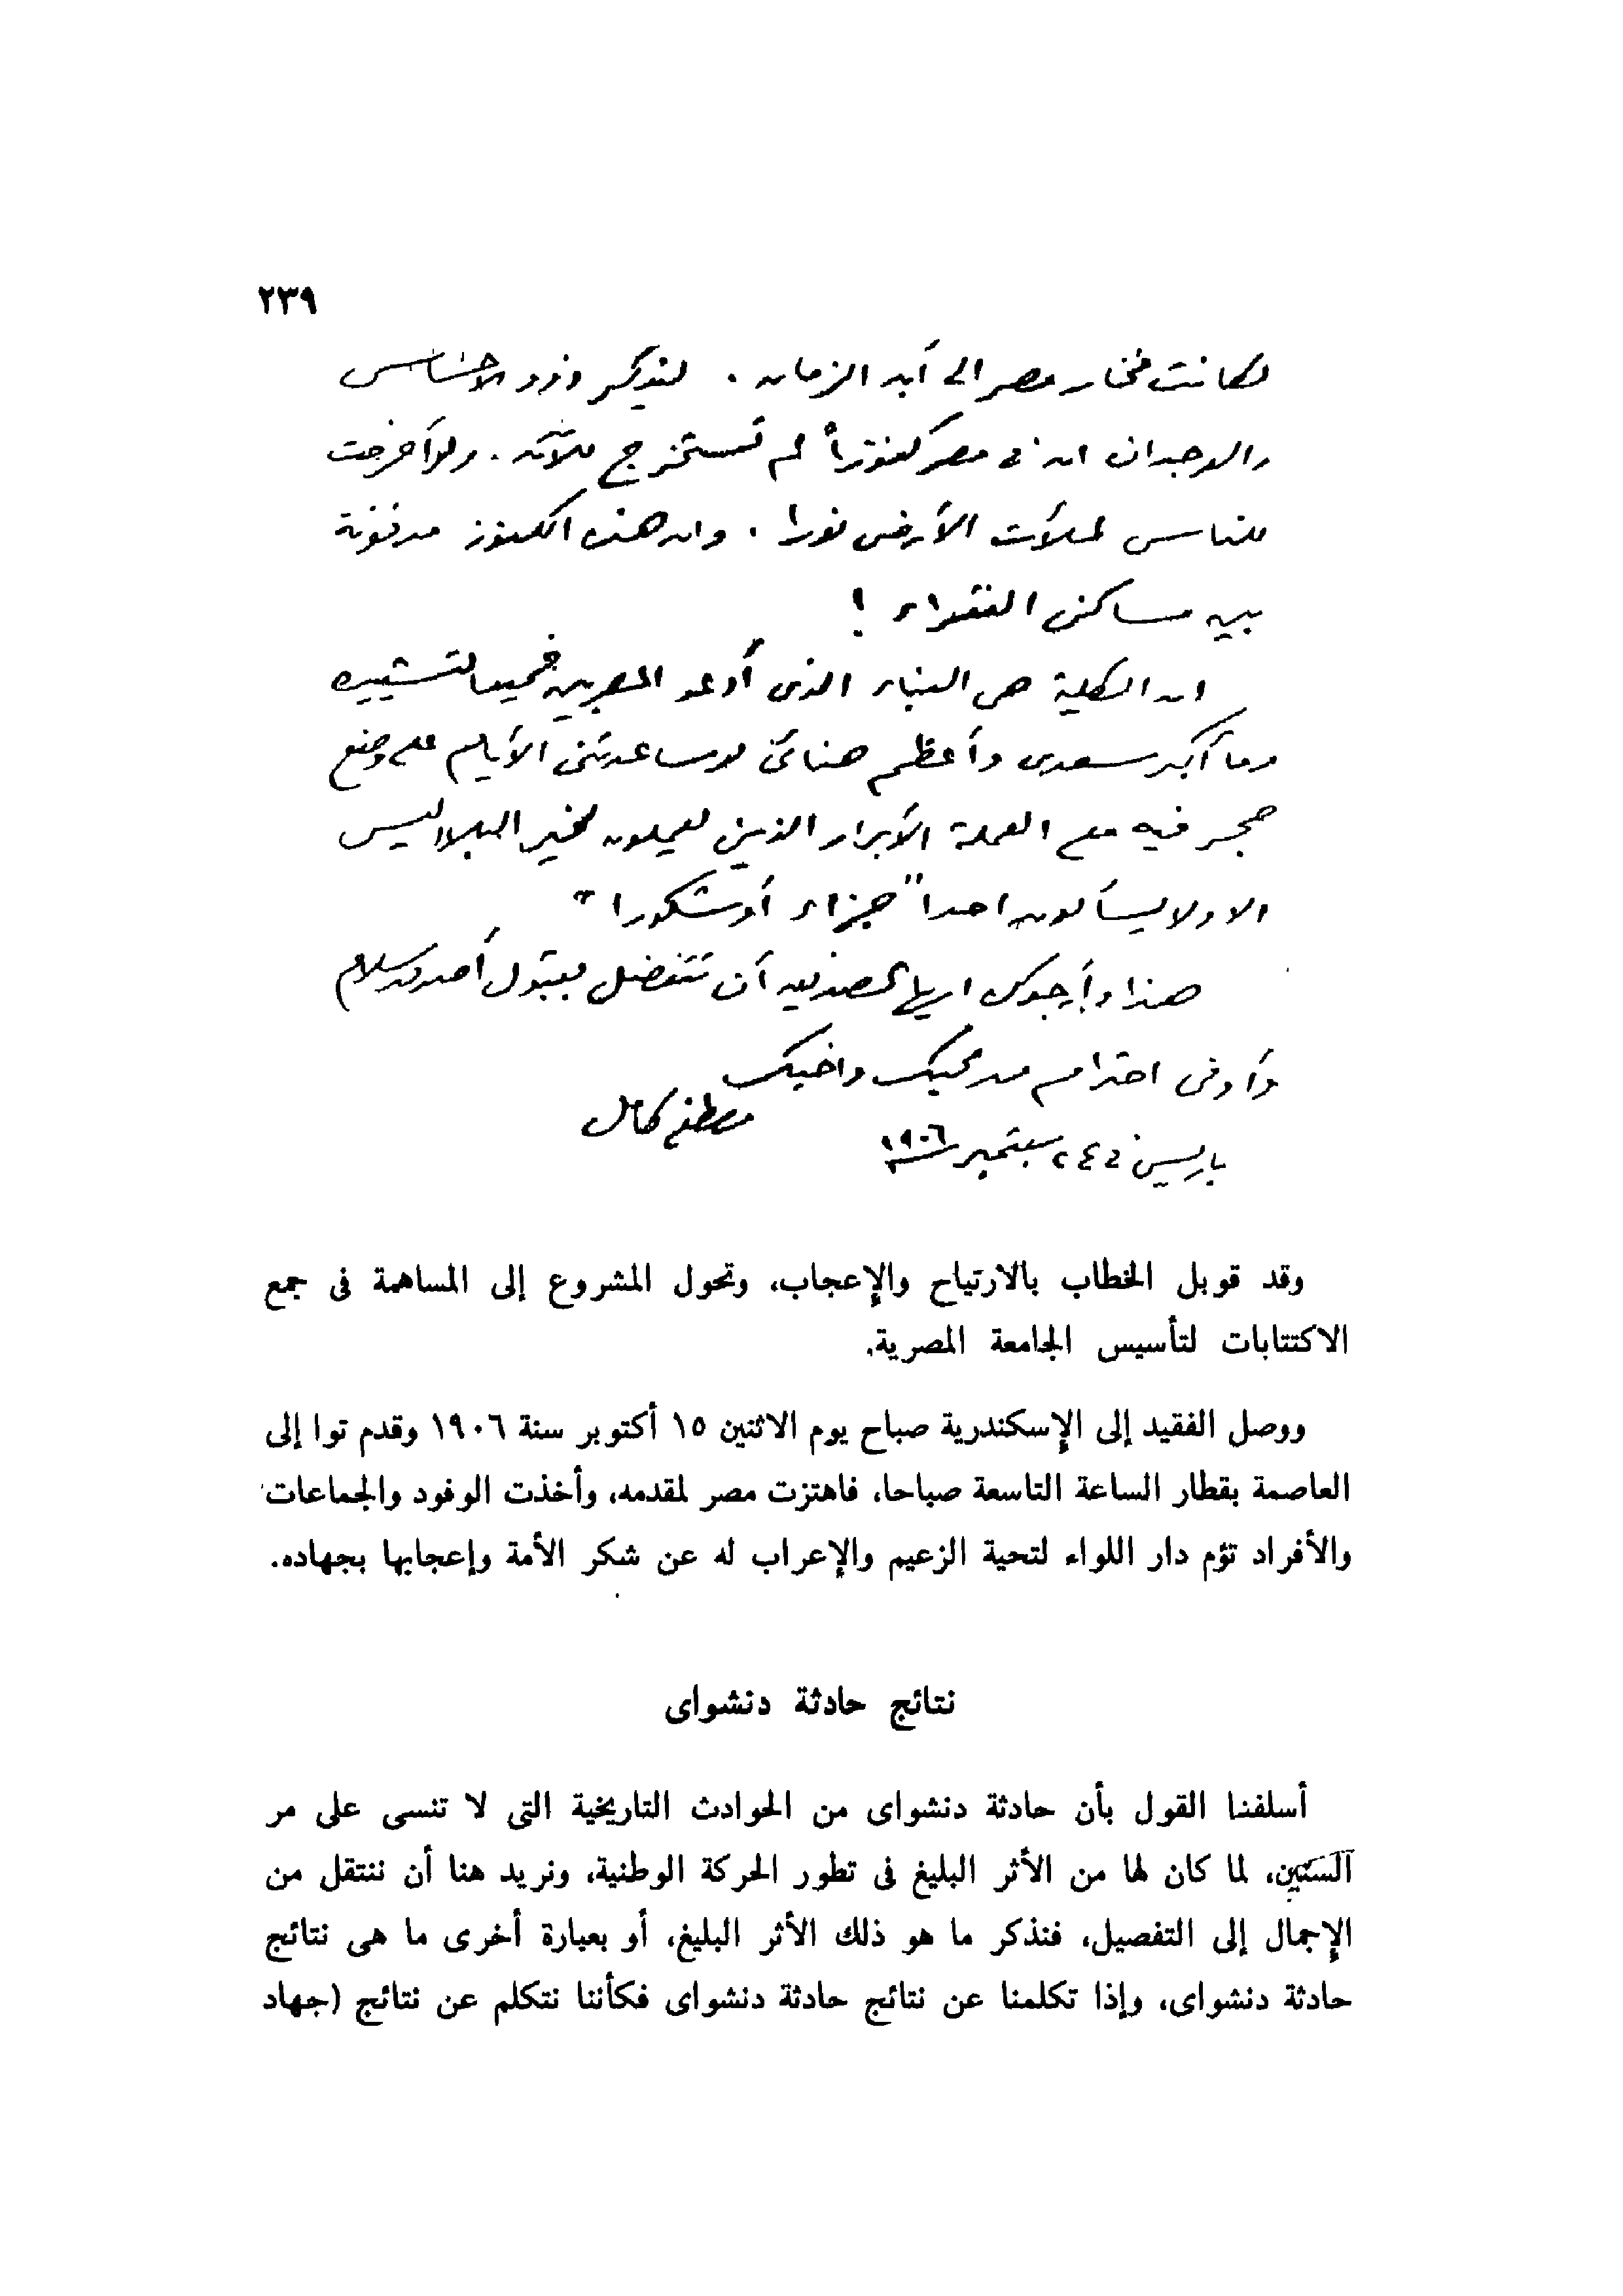 ٢٣٩
لكانت فخار مصر الى أبد الزمان . ليتذكر ذوو الاحساس
والوجدان ان فى مصر كنوزاً لم تستخرج للآن . ولو أخرجت
للناس لملأت الأرض نورا . وان هذه الكنوز مدفونة
بين مساكن الفقراء !
ان الكلية هى البناء الذى أدعو المصريين جميعا لتشييده
وما أكبر سعدى وأعظم هنائى لو ساعدتنى الأيام على وضع
حجر فيه مع العملة الأبرار الذين يعملون لخير البلاد ليس
الا ولا يسألون احدا "جزاء أو شكورا"
هذا وأرجوك ايها الصديق أن تتفضل بقبول أصدق سلام
وأوفى احترام من محبك واخيك
مصطفى كامل
باريس فى ٢٤ سبتمبر سنة ١٩٠٦
وقد قوبل الخطاب بالارتياح والإعجاب، وتحول المشروع إلى المساهمة فى جمع
الاكتتابات لتأسيس الجامعة المصرية.
ووصل الفقيد إلى الإسكندرية صباح يوم الاثنين ١٥ أكتوبر سنة ١٩٠٦ وقدم توا إلى
العاصمة بقطار الساعة التاسعة صباحا، فاهتزت مصر لمقدمه، وأخذت الوفود والجماعات
والأفراد تؤم دار اللواء لتحية الزعيم والإعراب له عن شكر الأمة وإعجابها بجهاده.
نتائج حادثة دنشواى
أسلفنا القول بأن حادثة دنشواى من الحوادث التاريخية التى لا تنسى على مر
السنين، لما كان لها من الأثر البليغ فى تطور الحركة الوطنية، ونريد هنا أن ننتقل من
الإجمال إلى التفصيل، فنذكر ما هو ذلك الأثر البليغ، أو بعبارة أخرى ما هى نتائج
حادثة دنشواى، وإذا تكلمنا عن نتائج حادثة دنشواى فكأننا نتكلم عن نتائج (جهاد